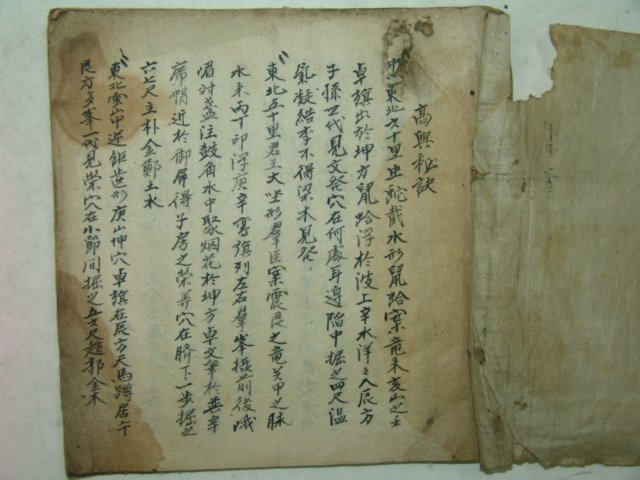 高興秘訣
中〻東北六十里虫蛇截水形鼠蛤案竜來亥山之主
卓旗出於坤方鼠蛤浮於波上辛水洋〻入辰方
子孫世代見文登穴在何處耳邊陷中掘之四尺溫
氣凝結李不得梁木見登
東北五十里君王大坐形羣臣案震艮之竜吴甲之脉
水來丙丁印浮庚辛雲旗列左右羣峯擁前後
眉对盞注鼓角水中聚烟花於坤方卓文筆於
席帽近於御屏得子房之榮葬穴在臍下一步掘之
六七尺主朴金鄭土水
東北雲山中逆鉅芒形庚山坤穴卓旗在辰方天馬蹲居午
艮方多峯一代見榮穴在小節間掘之五六尺趙郭金